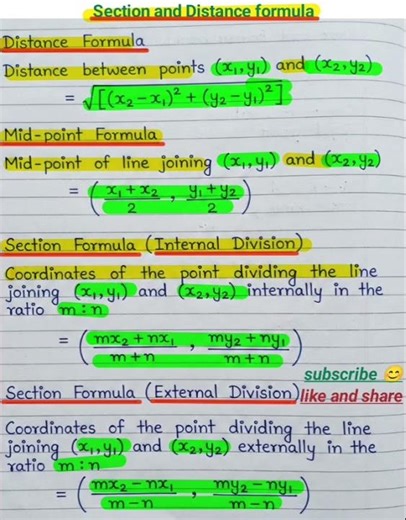 Section and Distance formula
Distance Formula
Distance between points (x₁,y₁) and (x₂,y₂)
= √[(x₂-x₁)² + (y₂-y₁)²]
Mid-point Formula
Mid-point of line joining (x₁,y₁) and (x₂,y₂)
= ( x₁+x₂/2 , y₁+y₂/2 )
Section Formula (Internal Division)
Coordinates of the point dividing the line
joining (x₁,y₁) and (x₂,y₂) internally in the
ratio m:n
= ( mx₂+nx₁/m+n , my₂+ny₁/m+n )
subscribe 😊
Section Formula (External Division) like and share
Coordinates of the point dividing the line
joining (x₁,y₁) and (x₂,y₂) externally in the
ratio m:n
= ( mx₂-nx₁/m-n , my₂-ny₁/m-n )